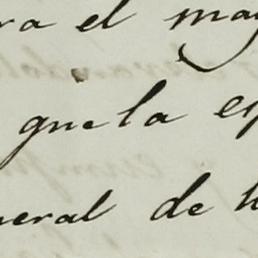 ra el may
que la es
neral de